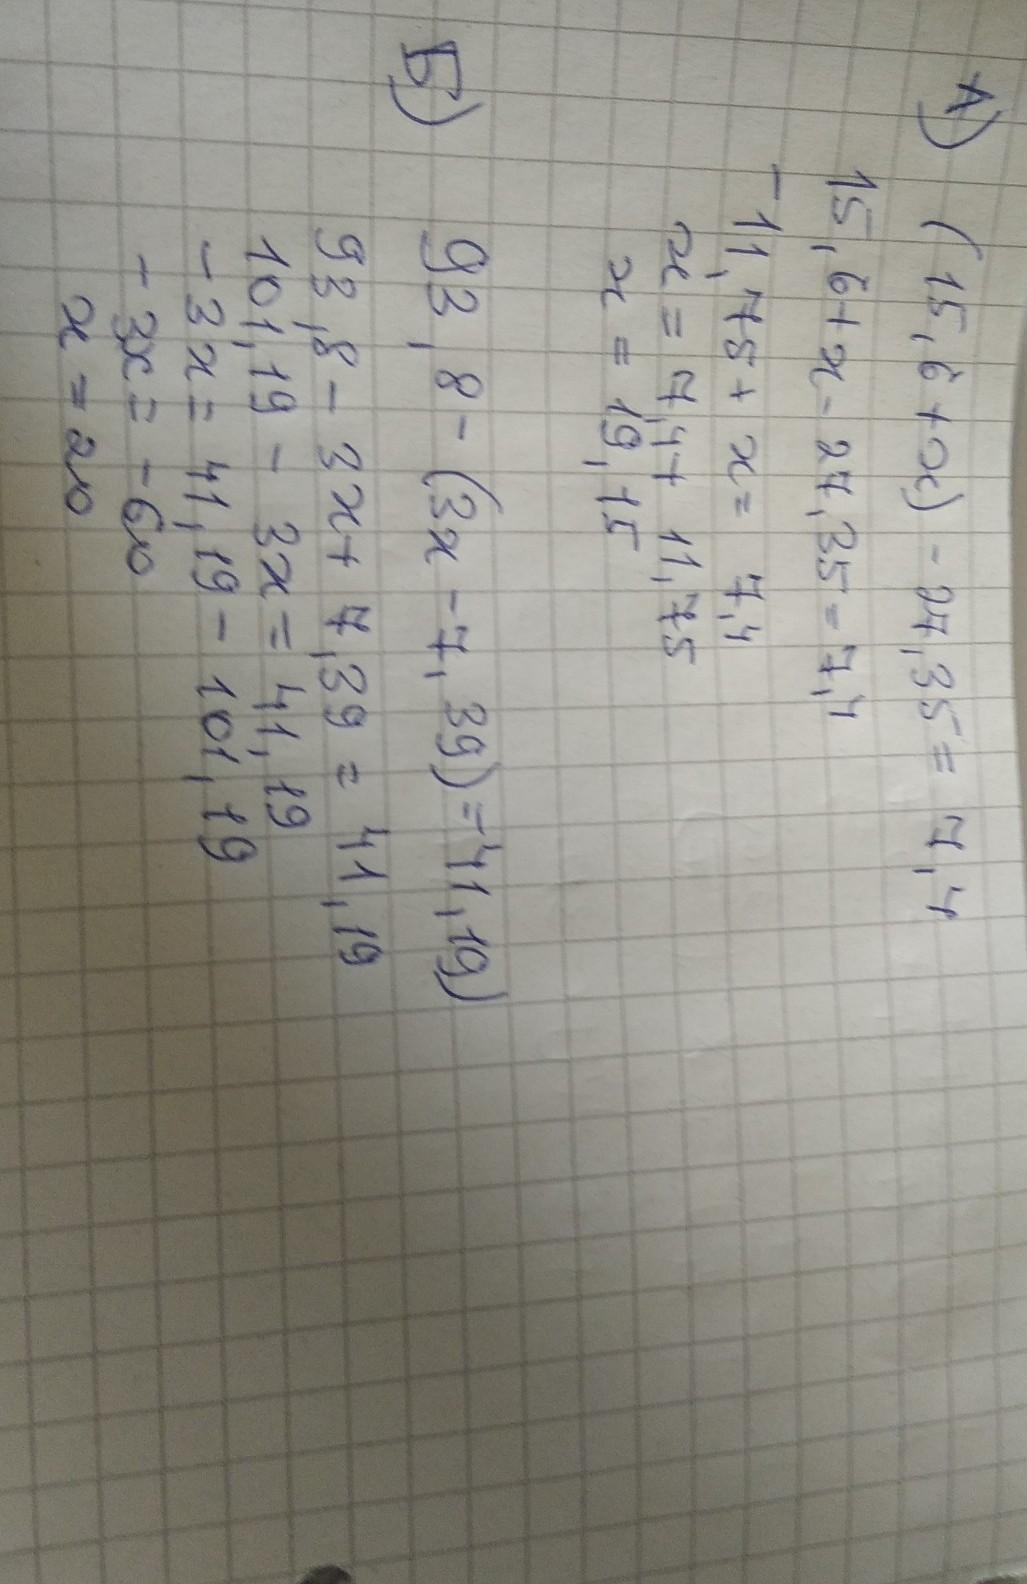 А) (15,6+x) - 27,35 = 7,4
15,6+x - 27,35 = 7,4
-11,75 + x = 7,4
x = 7,4 + 11,75
x = 19,15
Б) 93,8 - (3x - 7,39) = 41,19)
93,8 - 3x + 7,39 = 41,19
101,19 - 3x = 41,19
-3x = 41,19 - 101,19
-3x = -60
x = 20